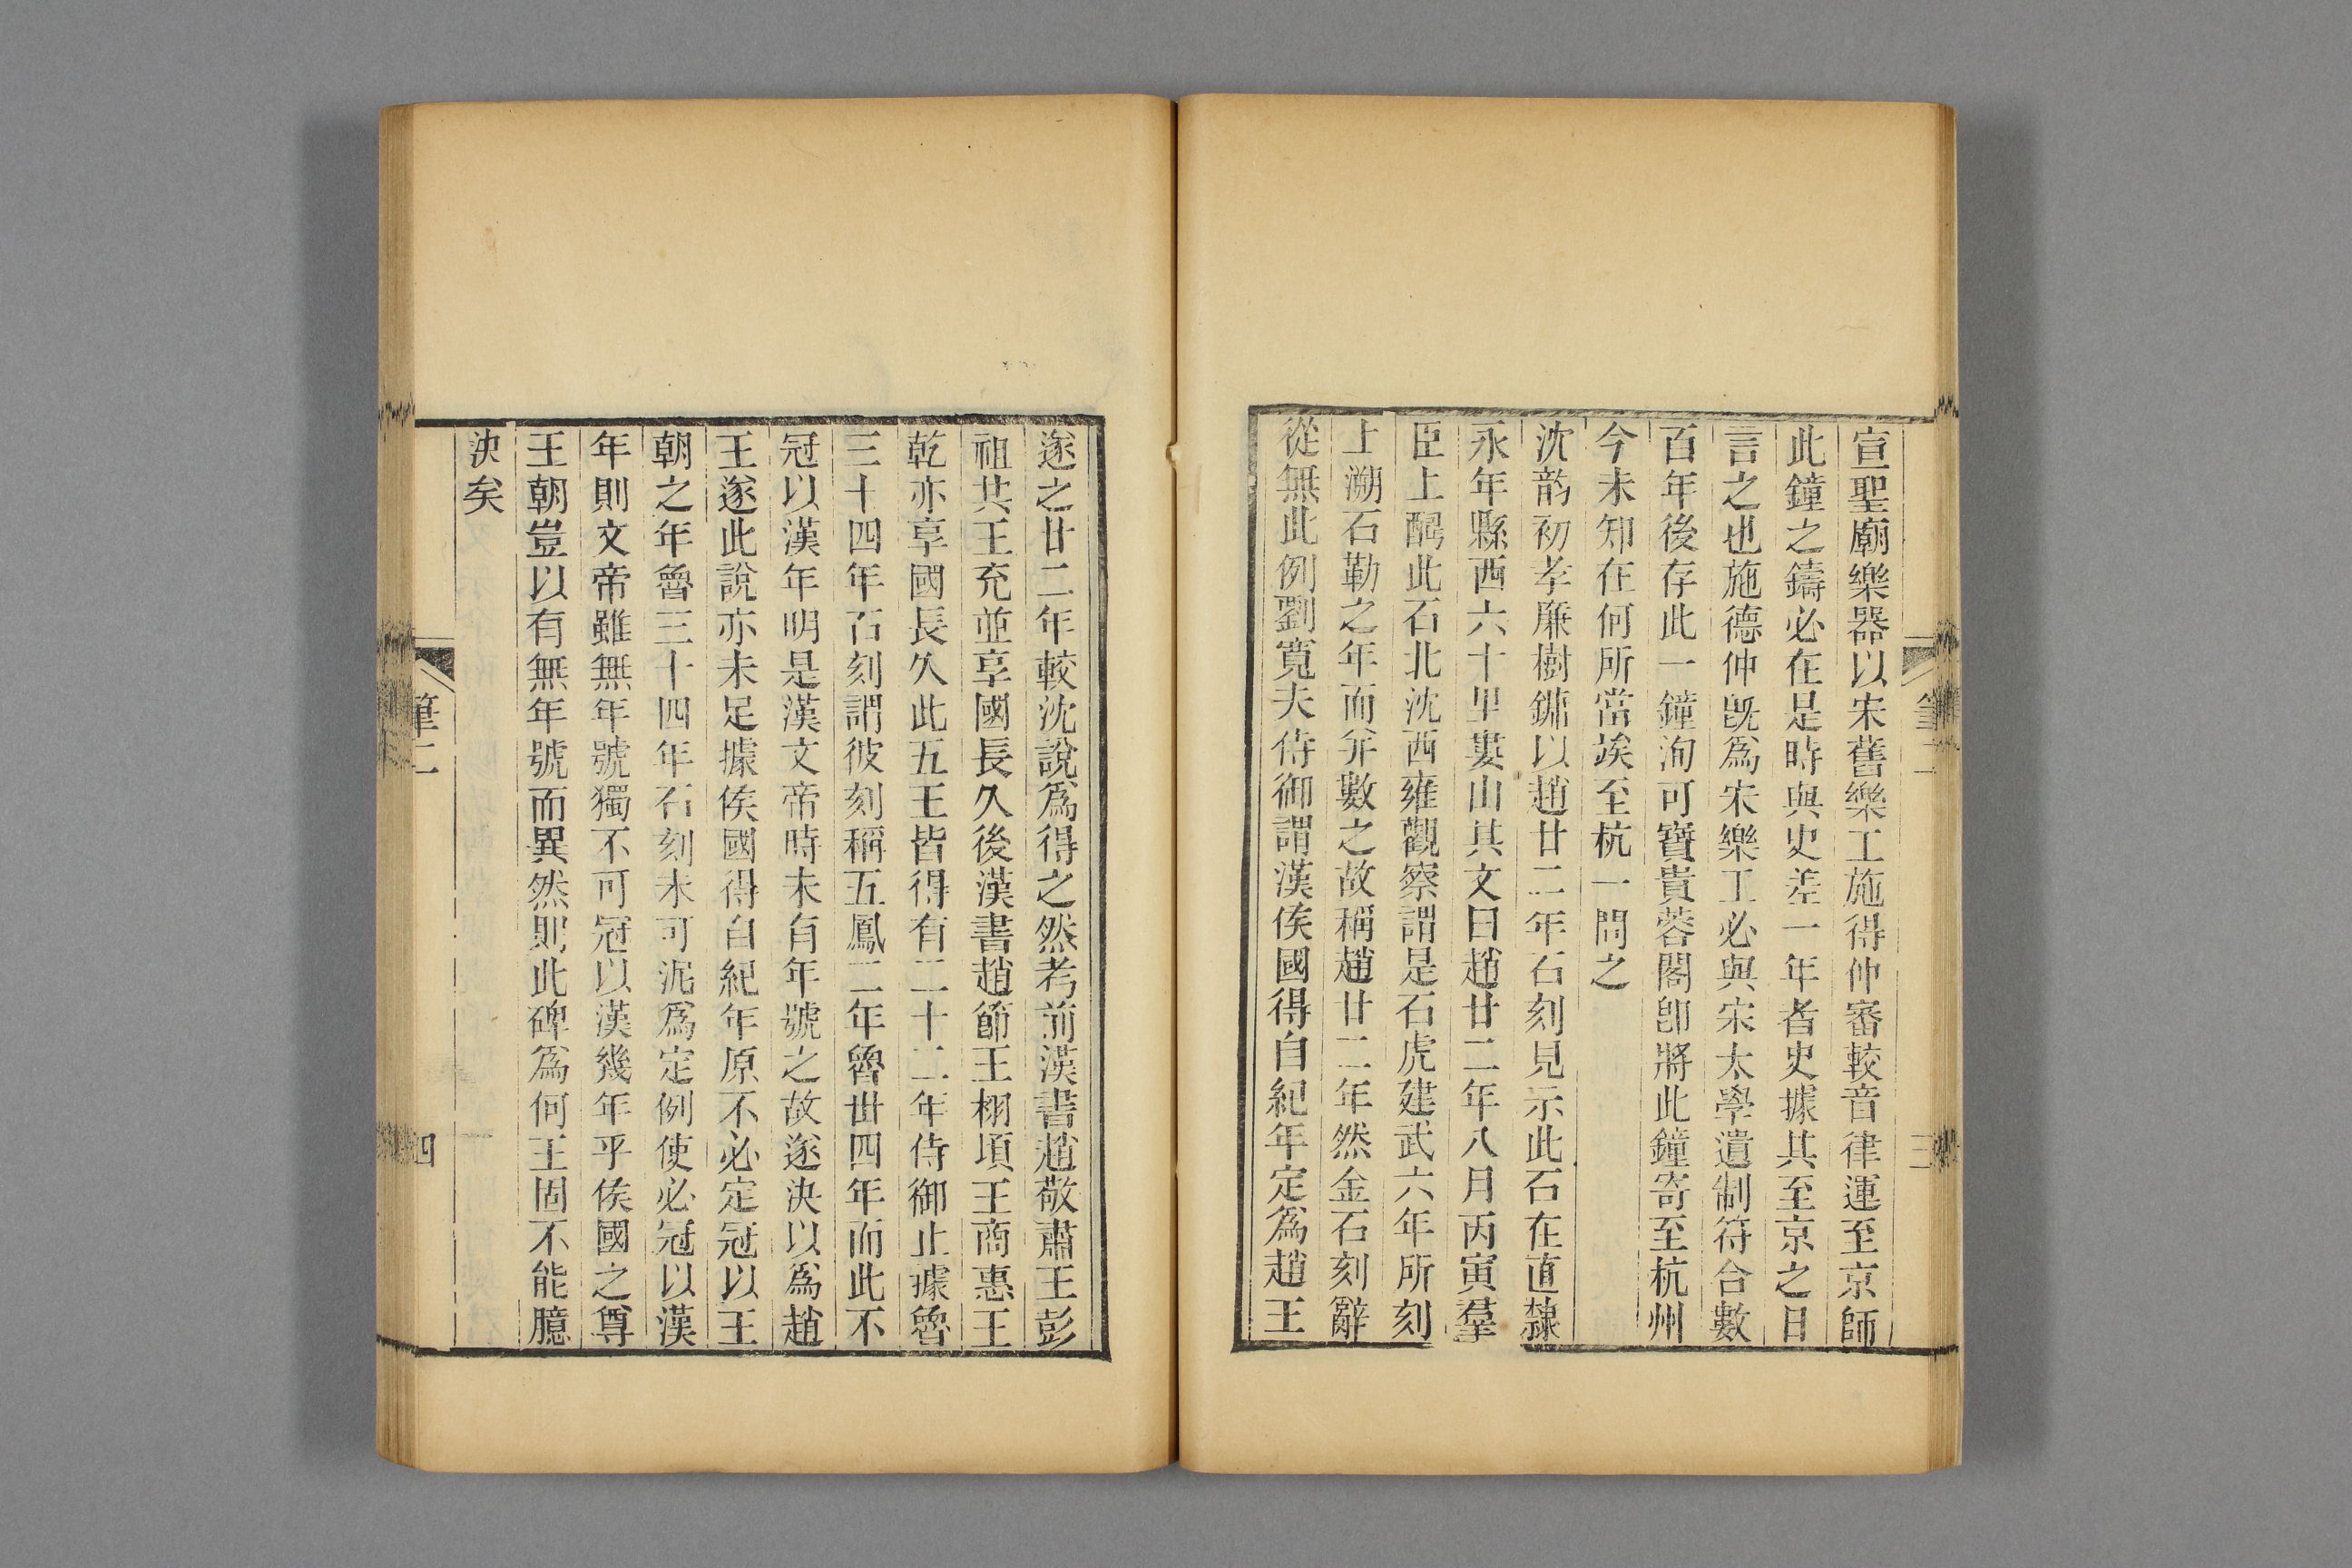 宣聖廟樂器以宋舊樂工施得仲審較音律運至京師
此鐘之鑄必在是時與史差一年者史據其至京之日
言之也施德仲旣爲宋樂工必與宋太學遺制符合數
百年後存此一鐘洵可寶貴蓉閣卽將此鐘寄至杭州
今未知在何所當竢至杭一問之
沈韵初孝廉樹鏞以趙廿二年石刻見示此石在直隸
永年縣西六十里婁山其文曰趙廿二年八月丙寅羣
臣上醻此石北沈西雍觀察謂是石虎建武六年所刻
上溯石勒之年而并數之故稱趙廿二年然金石刻辭
從無此例劉寬夫侍御謂漢矦國得自紀年定爲趙王
遂之廿二年較沈說爲得之然考前漢書趙敬肅王彭
祖共王充並享國長久後漢書趙節王栩頃王商惠王
乾亦享國長久此五王皆得有二十二年侍御止據魯
三十四年石刻謂彼刻稱五鳳二年魯卅四年而此不
冠以漢年明是漢文帝時未有年號之故遂決以爲趙
王遂此說亦未足據矦國得自紀年原不必定冠以王
朝之年魯三十四年石刻未可泥爲定例使必冠以漢
年則文帝雖無年號獨不可冠以漢幾年乎矦國之尊
王朝豈以有無年號而異然則此碑爲何王固不能臆
決矣
筆二
三
筆二
四